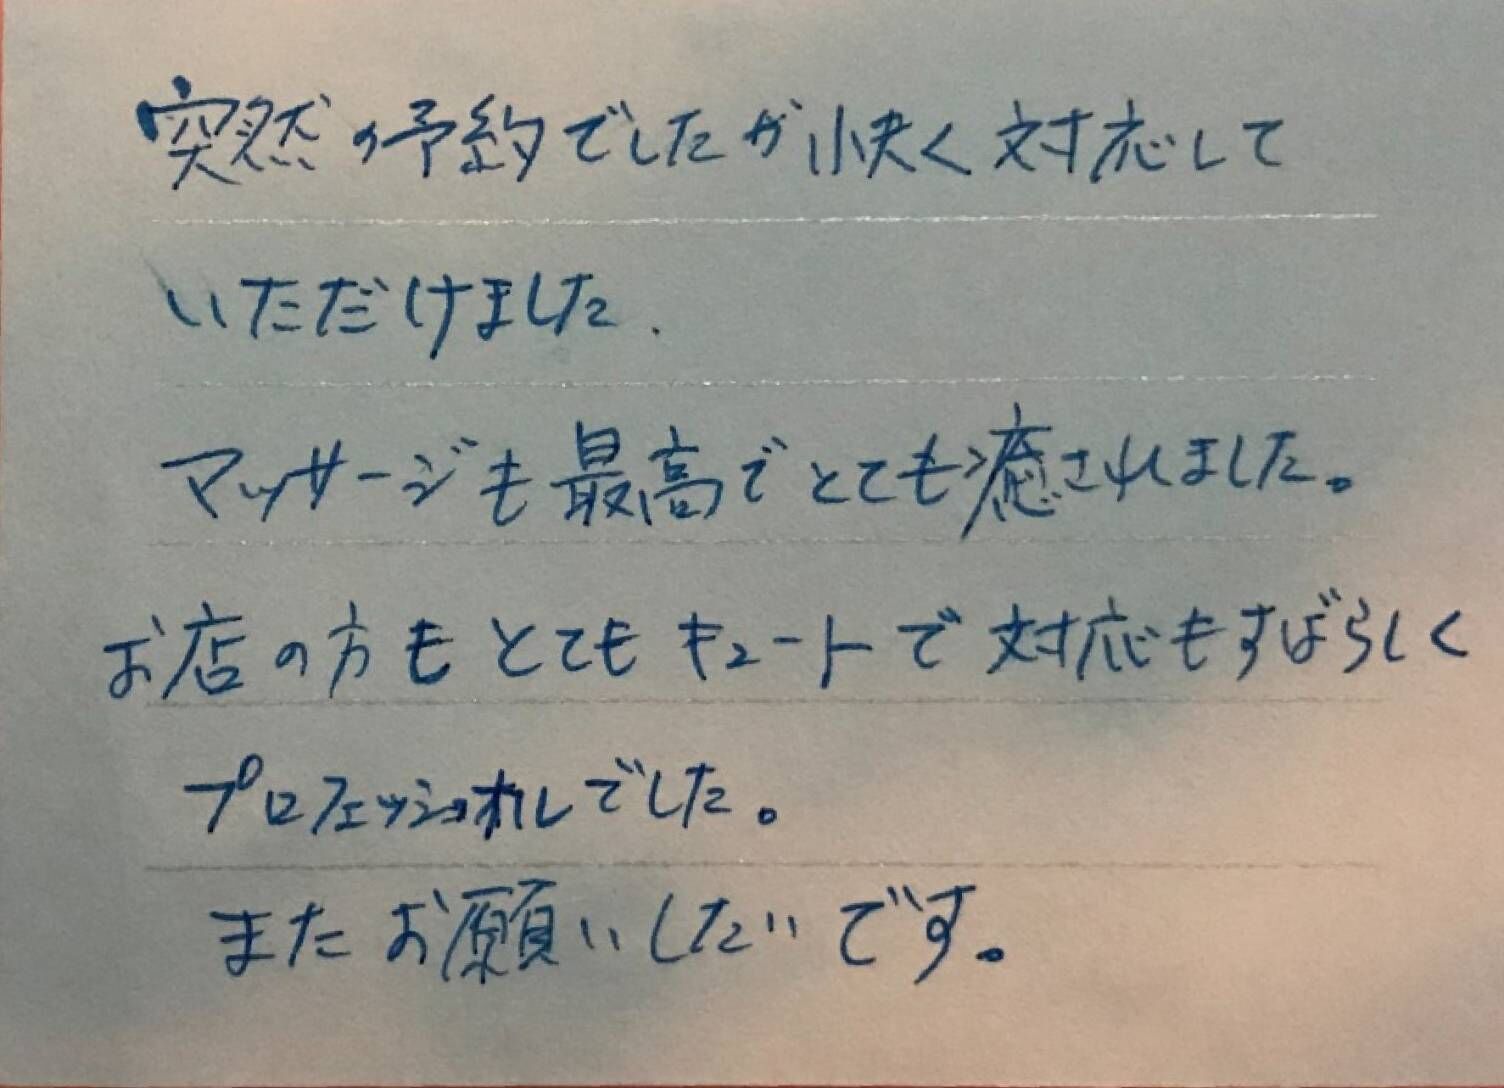 突然の予約でしたが快く対応して
いただけました.
マッサージも最高でとても癒されました。
お店の方もとてもキュートで対応もすばらしく
プロフェッショナルでした。
またお願いしたいです。